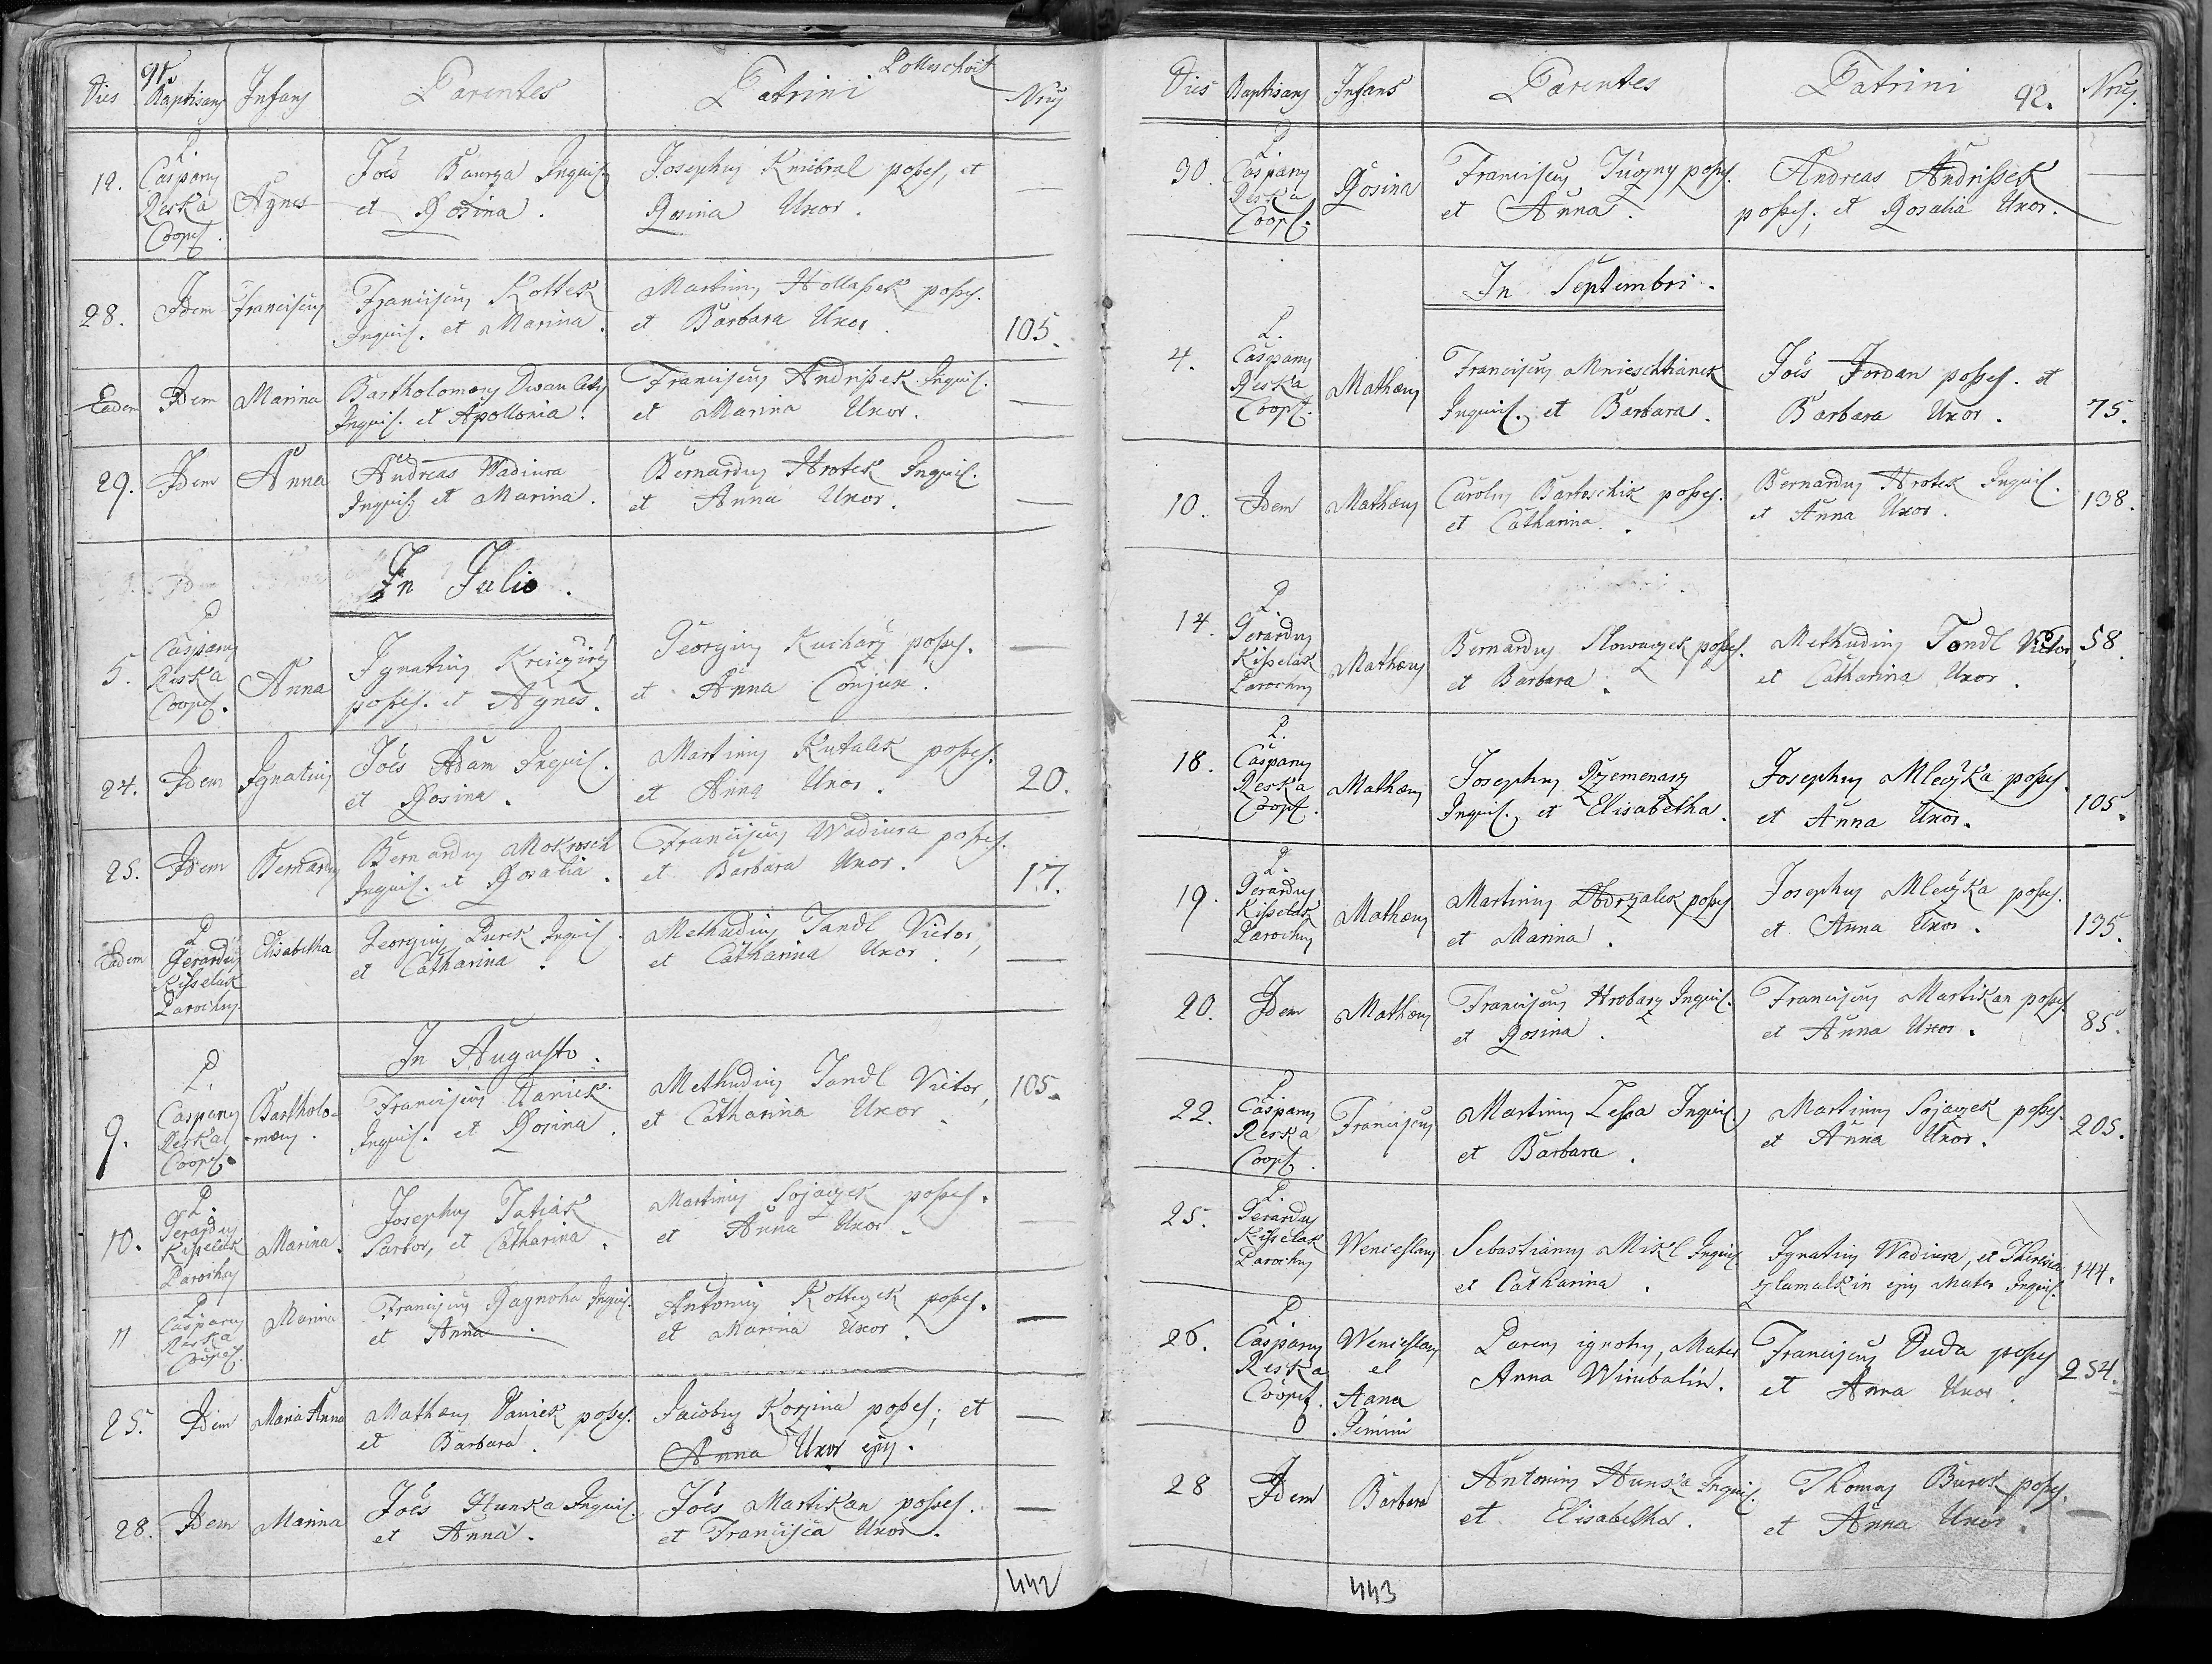 91.
Polleschovit
Dies Baptisans Infans Parentes Patrini Nrus
12. P. Casparus Reska Coopes. Agnes
Joes Baurza Inquil.
et Rosina.
Josephus Knebral posses, et
Rosina Uxor. —
28. Idem Franciscus
Franciscus Kottek
Inquil. et Marina.
Martinus Hollassek posses.
et Barbara Uxor. 105.
Eadem Idem Marina
Bartholomæus
Inquil. et Apollonia.
Franciscus Andrissek Inquil.
et Marina Uxor. —
29. Idem Anna
Andreas Wadiura
Inquil. et Marina.
Bernardus Hrotek Inquil.
et Anna Uxor. —
In Julio.
5. P. Casparus Reska Coopes. Anna
Ignatius Kreiczirz
posses. et Agnes.
Georgius Kucharz posses.
et Anna Conjux. —
24. Idem Ignatius
Joes Adam Inquil.
et Rosina.
Martinus Kutalek posses.
et Anna Uxor. 20.
25. Idem Bernardus
Bernardus Mokrosch
Inquil. et Rosalia.
Franciscus Wadiura posses.
et Barbara Uxor. 17.
Eadem P. Gerardus Kisselak Parochus Elisabetha
Georgius Purek Inquil.
et Catharina.
Methudius Jandl Victor,
et Catharina Uxor. —
In Augusto.
9. P. Casparus Reska Coopes. Bartholo-
mæus.
Franciscus Daniek
Inquil. et Rosina.
Methudius Jandl Victor,
et Catharina Uxor. 105.
10. P. Gerardus Kisselak Parochus Marina.
Josephus Tatiak
Sartor, et Catharina.
Martinus Sojaczek posses.
et Anna Uxor.
11 P. Casparus Reska Coopes. Marina
Franciscus Raynoha Inquil.
et Anna.
Antonius Kotteczek posses.
et Marina Uxor. —
25. Idem Maria Anna
Mathæus Daniek posses.
et Barbara.
Jacobus Korzina posses; et
Anna Uxor ejus. —
28. Idem Marina
Joes Hunka Inquil.
et Anna.
Joes Martikan posses.
et Francisca Uxor. —
442
Dies Baptisans Infans Parentes Patrini 92. Nrus.
30. P. Casparus Reska Coopes. Rosina
Franciscus posses.
et Anna.
Andreas Andrissek
posses; et Rosalia Uxor. —
In Septembri.
4. P. Casparus Reska Coopes. Mathæus
Franciscus Mnieschtianek
Inquil. et Barbara.
Joes Jordan posses. et
Barbara Uxor. 75.
10. Idem Mathæus
Carolus Bartoschik posses.
et Catharina.
Bernardus Hrotek Inquil.
et Anna Uxor. 138.
14. P. Gerardus Kisselak Parochus Mathæus
Bernardus Slowaczek posses.
et Barbara.
Methudius Jandl Victor,
et Catharina Uxor. 58.
18. P. Casparus Reska Coopes. Mathæus
Josephus Rzemenarz
Inquil., et Elisabetha.
Josephus Mleczka posses.
et Anna Uxor. 105.
19. P. Gerardus Kisselak Parochus Mathæus
Martinus Obdrzalek posses
et Marina.
Josephus Mleczka posses.
et Anna Uxor. 135.
20. Idem Mathæus
Franciscus Hrobarz Inquil.
et Rosina.
Franciscus Martikan posses
et Anna Uxor. 85.
22. P. Casparus Reska Coopes. Franciscus
Martinus Lessa Inquil.
et Barbara.
Martinus Sojaczek posses.
et Anna Uxor. 205.
25. P. Gerardus Kisselak Parochus Wenceslaus
Sebastianus Mikl Inquil
et Catharina.
Ignatius Wadiura, et Theresia
Zlamalkin ejus Mater Inquil. 144.
26. P. Casparus Reska Coopes. Wenceslaus
et
Anna
Gemini
Parens ignotus, Mater
Anna Wirubalin.
Franciscus Duda posses
et Anna Uxor. 254.
28 Idem Barbara
Antonius Hunka Inquil.
et Elisabetha.
Thomas Burek posses.
et Anna Uxor. —
443